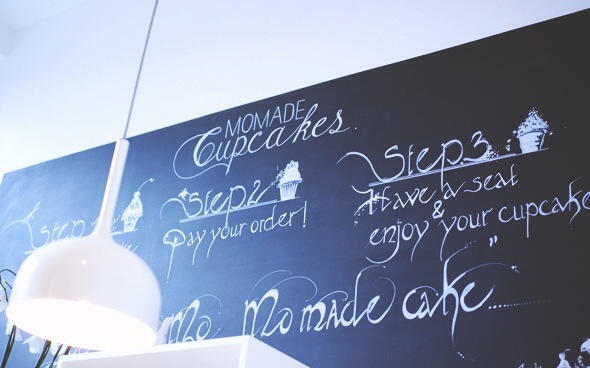 MOMADE
Cupcakes.
Step 1
Step 2
Pay your order!
Step 3
Have a seat
& enjoy your cupcake
Mo Momade cake"...